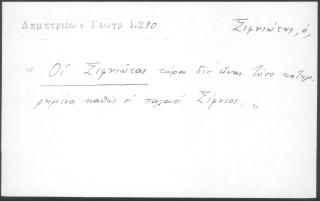 Δημητριέων Γεωγρ 1.290
Σιφνιώτης, ὁ,
" Οἱ Σιφνιῶται τώρα δὲν εἶναι τόσο κατηγ
ρημένοι καθὼς οἱ παλαιοὶ Σίφνιοι. "